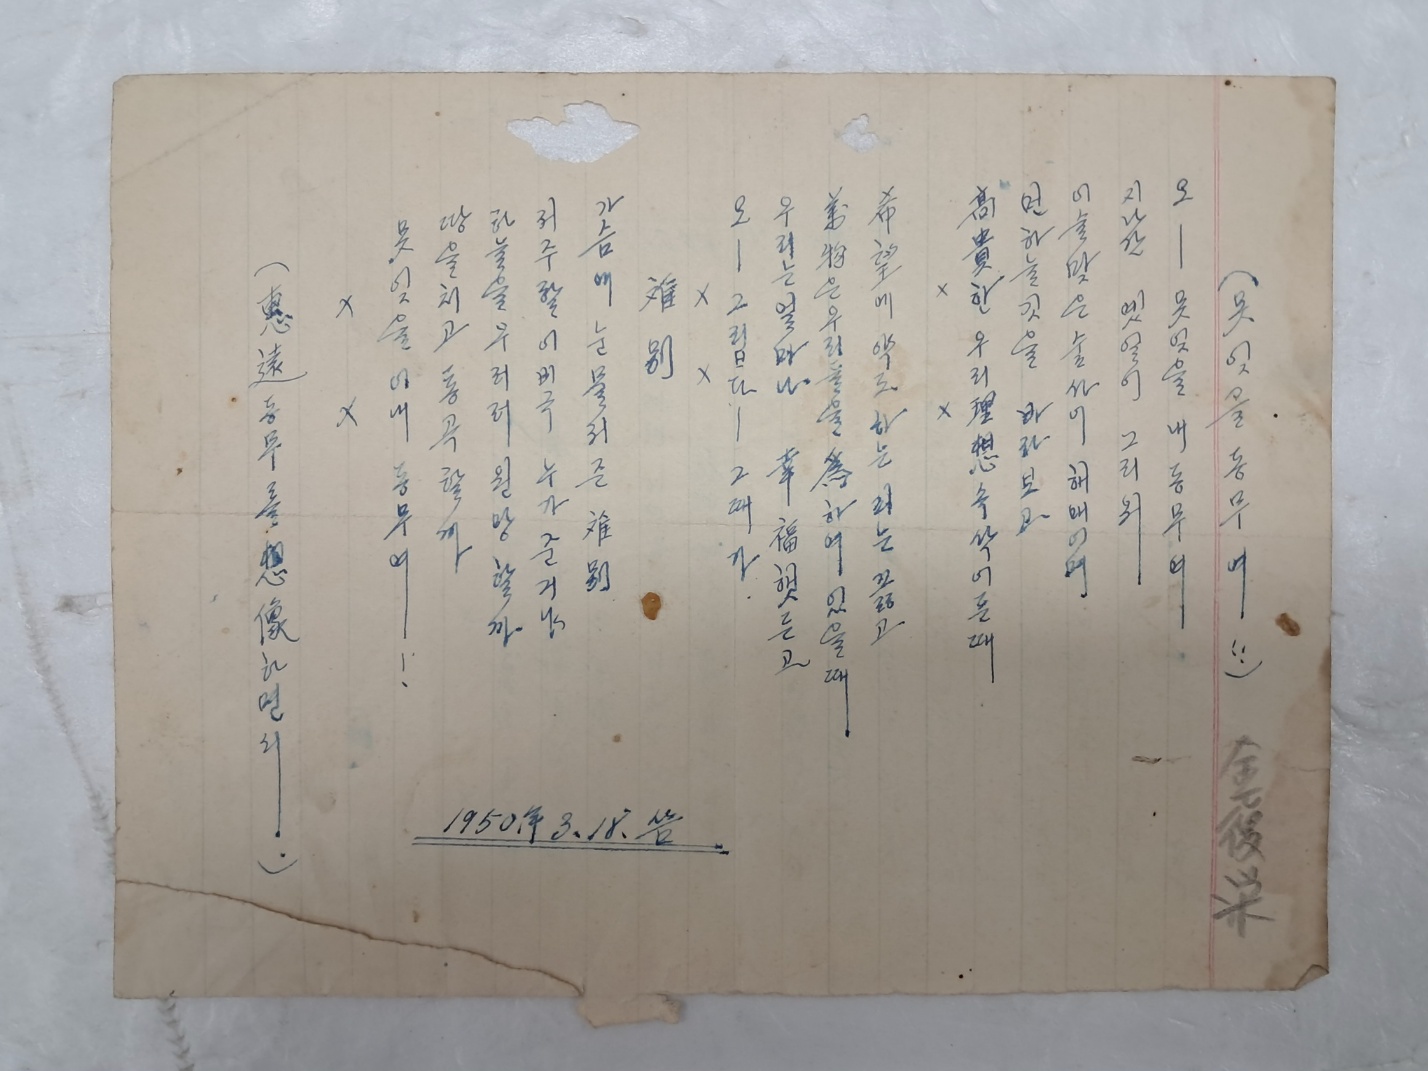 (못잊을 동무여!!)
金俊榮
오ㅡ 못잊을 내동무여ㅡ
지난 옛일이 그리워ㅡ
이슬맞은 솔사이 헤매이며
먼 하늘 것을 바라보고
高貴한 우리理想 속삭이든때
× ×
希望에 약도 하는 피는 끓고
萬物은 우리들을 爲하여 있을때ㅡ
우리는 얼마나 幸福했든고
오ㅡ 그립다!ㅡ 그때가.
× ×
離别
가슴에 눈물되준 離别
뉘주할 이비극 누가 준거냐
하늘을 우러러 원망 할까
땅을치고 통곡할까
못잊을 이내 동무여ㅡ!!
× ×
(惠遠동무를 想像하면서ㅡ.)
1950.年 3. 18. 씀